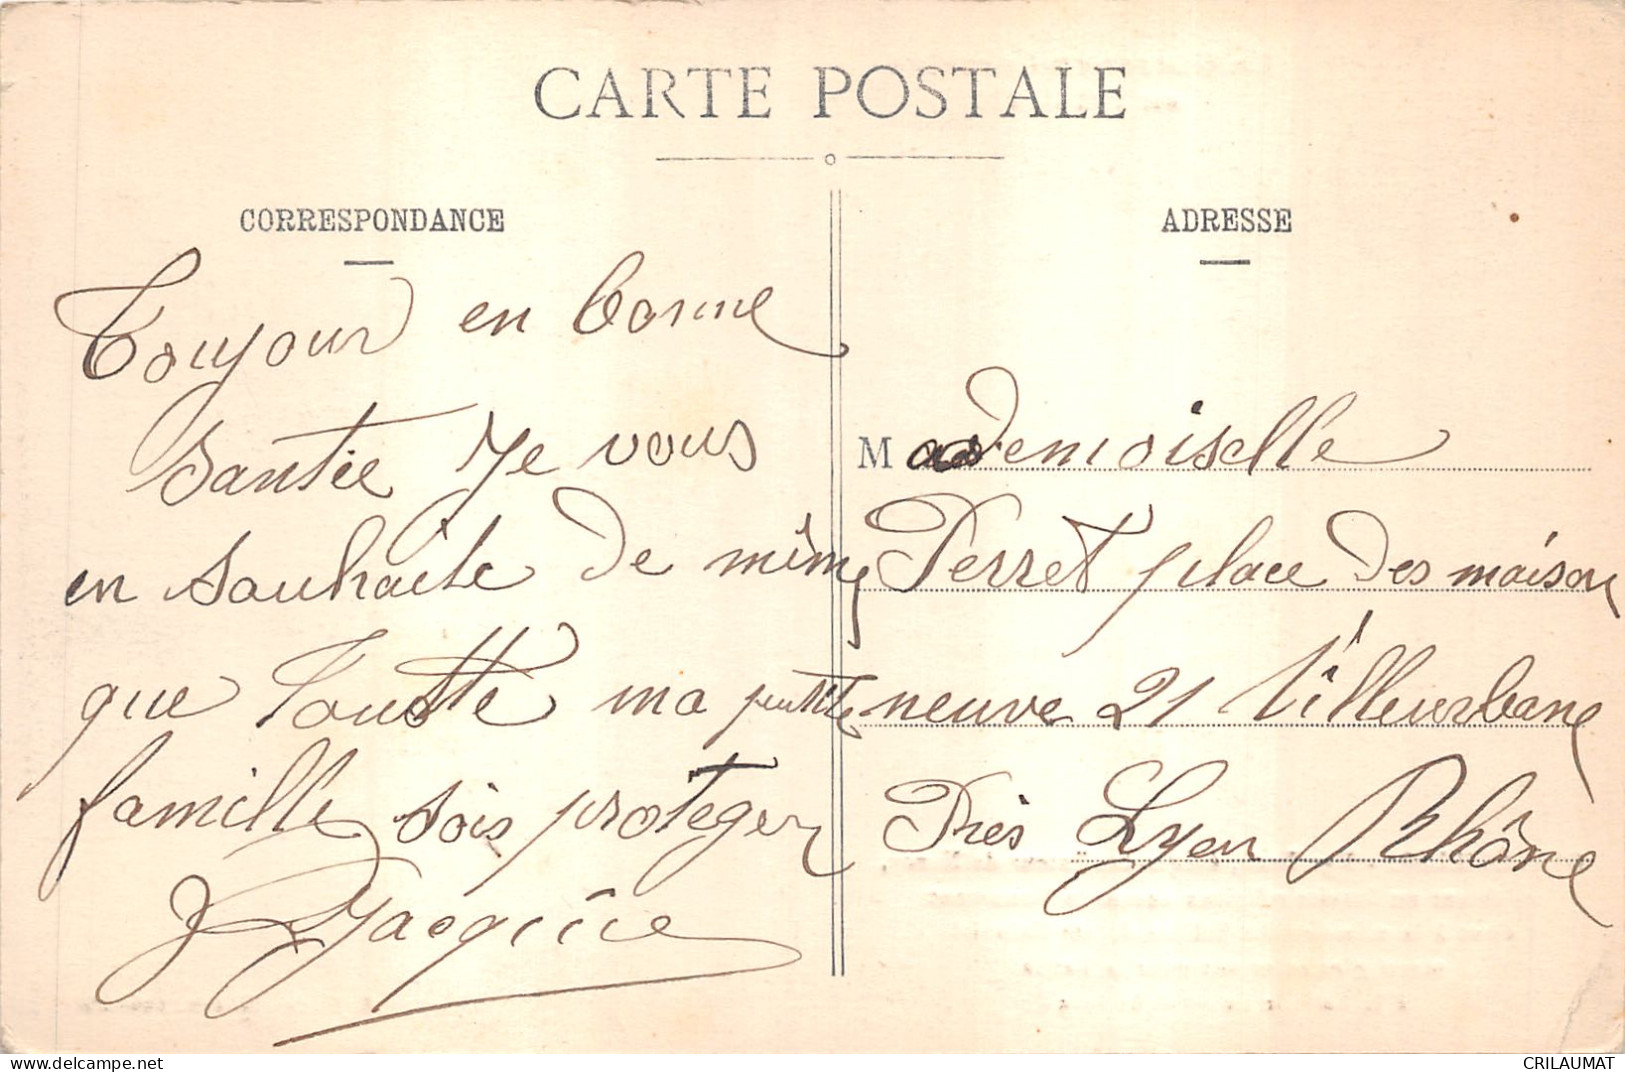 CARTE POSTALE
CORRESPONDANCE
Toujour en bonne
santée Je vous
en souhaite de mème
que toutte ma petite
famille sois protéger
ADRESSE
Mademoiselle
Perret place des maison
neuve 21 Villeurbane
Près Lyon Rhône
delcampe.net
CRILAUMAT